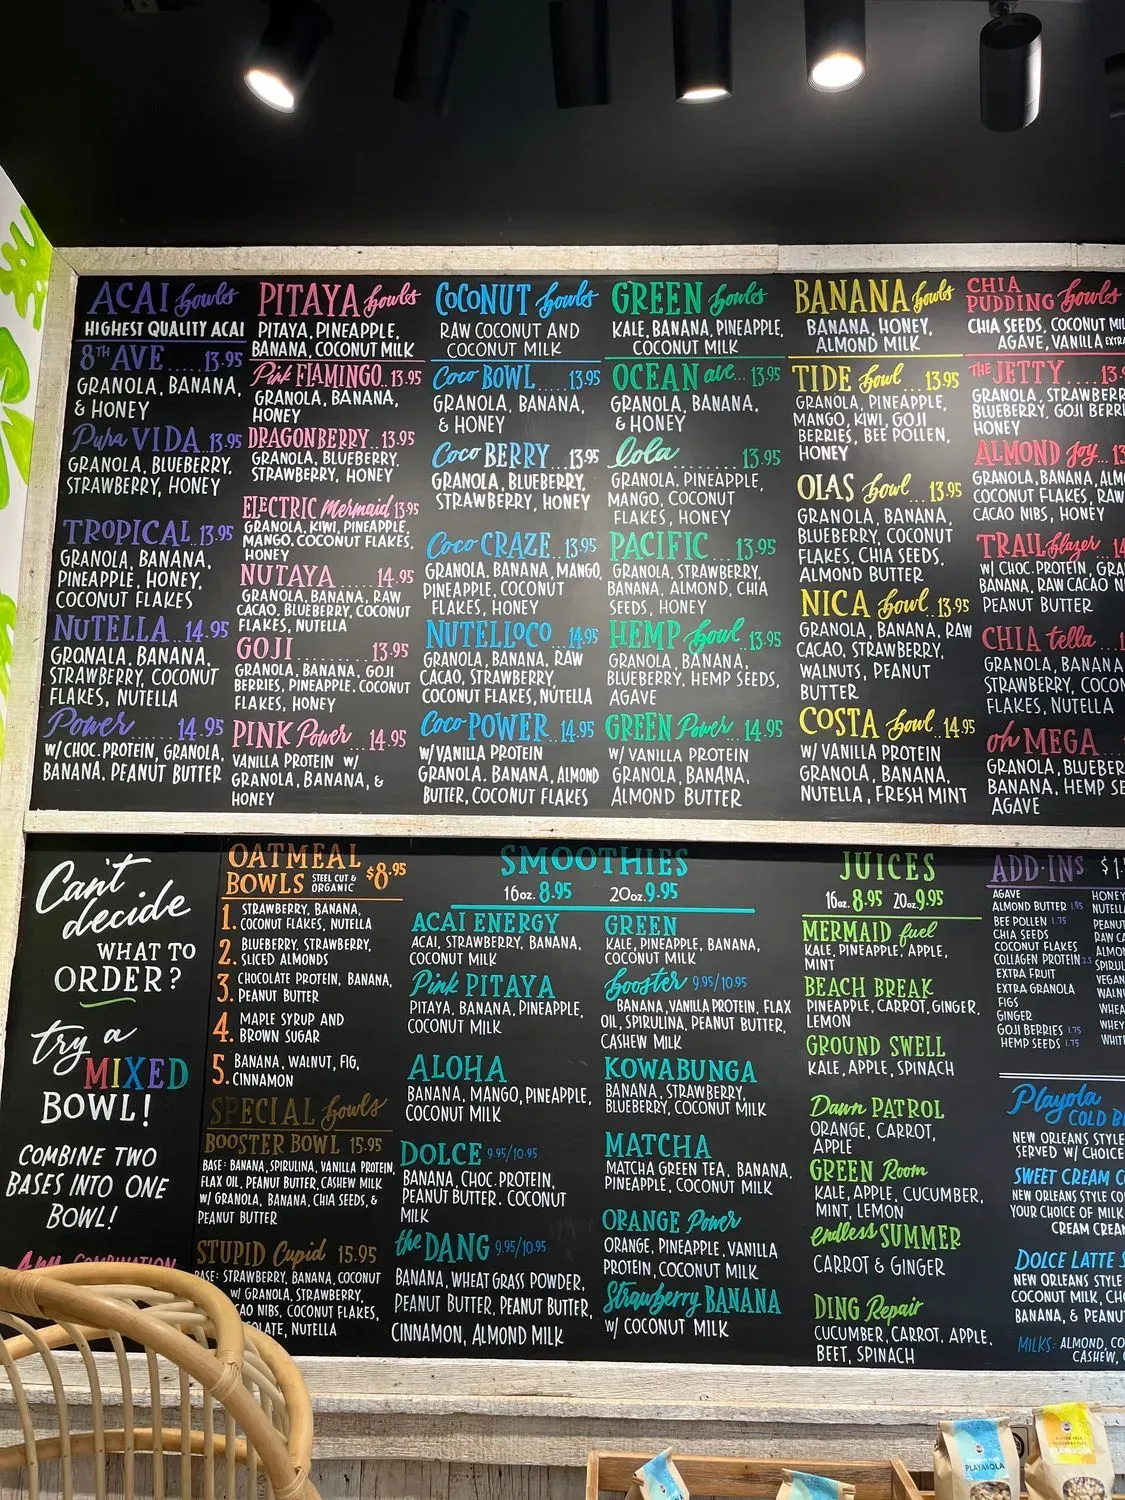 ACAI bowls
HIGHEST QUALITY ACAI
8TH AVE ... 13.95
GRANOLA, BANANA,
& HONEY
Pura VIDA. 13.95
GRANOLA, BLUEBERRY,
STRAWBERRY, HONEY
TROPICAL.. 13.95
GRANOLA, BANANA,
PINEAPPLE, HONEY,
COCONUT FLAKES
NUTELLA.. 14.95
GRANALA, BANANA,
STRAWBERRY, COCONUT
FLAKES, NUTELLA
Power....... 14.95
W/ CHOC. PROTEIN, GRANOLA,
BANANA, PEANUT BUTTER
PITAYA bowls
PITAYA, PINEAPPLE,
BANANA, COCONUT MILK
Pink FLAMINGO..13.95
GRANOLA, BANANA,
HONEY
DRAGONBERRY...13.95
GRANOLA, BLUEBERRY.
STRAWBERRY, HONEY
ELECTRIC Mermaid 13.95
GRANOLA, KIWI, PINEAPPLE,
MANGO, COCONUT FLAKES,
HONEY
NUTAYA ...... 14.95
GRANOLA, BANANA, RAW
CACAO, BLUEBERRY, COCONUT
FLAKES, NUTELLA
GOJI........... 13.95
GRANOLA, BANANA, GOJI
BERRIES, PINEAPPLE, COCONUT
FLAKES, HONEY
PINK Power... 14.95
VANILLA PROTEIN W/
GRANOLA, BANANA, &
HONEY
COCONUT bowls
RAW COCONUT AND
COCONUT MILK
Coco BOWL .... 13.95
GRANOLA, BANANA,
& HONEY
Coco BERRY... 13.95
GRANOLA, BLUEBERRY,
STRAWBERRY, HONEY
Coco CRAZE.. 13.95
GRANOLA, BANANA, MANGO,
PINEAPPLE, COCONUT
FLAKES, HONEY
NUTELLOCO .. 14.95
GRANOLA, BANANA, RAW
CACAO, STRAWBERRY,
COCONUT FLAKES, NUTELLA
Coco POWER .. 14.95
W/VANILLA PROTEIN
GRANOLA. BANANA, ALMOND
BUTTER, COCONUT FLAKES
GREEN bowls
KALE, BANANA, PINEAPPLE,
COCONUT MILK
OCEAN ave... 13.95
GRANOLA, BANANA,
& HONEY
Lola ........... 13.95
GRANOLA, PINEAPPLE,
MANGO, COCONUT
FLAKES, HONEY
PACIFIC.... 13.95
GRANOLA, STRAWBERRY,
BANANA, ALMOND, CHIA
SEEDS, HONEY
HEMP bowl. 13.95
GRANOLA, BANANA,
BLUEBERRY, HEMP SEEDS,
AGAVE
GREEN Power.. 14.95
W/ VANILLA PROTEIN
GRANOLA, BANANA,
ALMOND BUTTER
BANANA bowls
BANANA, HONEY,
ALMOND MILK
TIDE bowl .... 13.95
GRANOLA, PINEAPPLE,
MANGO, KIWI, GOJI
BERRIES, BEE POLLEN,
HONEY
OLAS bowl .. 13.95
GRANOLA, BANANA,
BLUEBERRY, COCONUT
FLAKES, CHIA SEEDS,
ALMOND BUTTER
NICA bowl.. 13.95
GRANOLA, BANANA, RAW
CACAO, STRAWBERRY,
WALNUTS, PEANUT
BUTTER
COSTA bowl. 14.95
W/ VANILLA PROTEIN
GRANOLA, BANANA,
NUTELLA, FRESH MINT
CHIA
PUDDING bowls
CHIA SEEDS, COCONUT
AGAVE, VANILLA
THE JETTY ......
GRANOLA,
BLUEBERRY, GOJI
HONEY
ALMOND Joy...
GRANOLA, BANANA,
COCONUT FLAKES, RAW
CACAO NIBS, HONEY
TRAIL blazer ..
W/ CHOC. PROTEIN,
BANANA, RAW CACAO
PEANUT BUTTER
CHIA tella ....
GRANOLA, BANANA
STRAWBERRY,
FLAKES, NUTELLA
oh MEGA.....
GRANOLA,
BANANA, HEMP
AGAVE
Can't
decide
WHAT TO
ORDER?
try a
MIXED
BOWL!
COMBINE TWO
BASES INTO ONE
BOWL!
Any COMBINATION
OATMEAL
BOWLS STEEL CUT & ORGANIC $8.95
1. STRAWBERRY, BANANA,
COCONUT FLAKES, NUTELLA
2. BLUEBERRY, STRAWBERRY,
SLICED ALMONDS
3. CHOCOLATE PROTEIN, BANANA,
PEANUT BUTTER
4. MAPLE SYRUP AND
BROWN SUGAR
5. BANANA, WALNUT, FIG,
CINNAMON
SPECIAL bowls
BOOSTER BOWL 15.95
BASE: BANANA, SPIRULINA, VANILLA PROTEIN,
FLAX OIL, PEANUT BUTTER, CASHEW MILK
W/ GRANOLA, BANANA, CHIA SEEDS, &
PEANUT BUTTER
STUPID Cupid 15.95
BASE: STRAWBERRY, BANANA, COCONUT
W/ GRANOLA, STRAWBERRY,
NIBS, COCONUT FLAKES,
NUTELLA
SMOOTHIES
16oz. 8.95 20oz. 9.95
ACAI ENERGY
ACAI, STRAWBERRY, BANANA,
COCONUT MILK
Pink PITAYA
PITAYA, BANANA, PINEAPPLE,
COCONUT MILK
ALOHA
BANANA, MANGO, PINEAPPLE,
COCONUT MILK
DOLCE 9.95/10.95
BANANA, CHOC. PROTEIN,
PEANUT BUTTER. COCONUT
MILK
the DANG 9.95/10.95
BANANA, WHEAT GRASS POWDER,
PEANUT BUTTER, PEANUT BUTTER,
CINNAMON, ALMOND MILK
GREEN
KALE, PINEAPPLE, BANANA,
COCONUT MILK
booster 9.95/10.95
BANANA, VANILLA PROTEIN, FLAX
OIL, SPIRULINA, PEANUT BUTTER,
CASHEW MILK
KOWABUNGA
BANANA, STRAWBERRY,
BLUEBERRY, COCONUT MILK
MATCHA
MATCHA GREEN TEA, BANANA,
PINEAPPLE, COCONUT MILK
ORANGE Power
ORANGE, PINEAPPLE, VANILLA
PROTEIN, COCONUT MILK
Strawberry BANANA
W/ COCONUT MILK
JUICES
16oz. 8.95 20oz. 9.95
MERMAID fuel
KALE, PINEAPPLE, APPLE,
MINT
BEACH BREAK
PINEAPPLE, CARROT, GINGER,
LEMON
GROUND SWELL
KALE, APPLE, SPINACH
Dawn PATROL
ORANGE, CARROT,
APPLE
GREEN Room
KALE, APPLE, CUCUMBER,
MINT, LEMON
endless SUMMER
CARROT & GINGER
DING Repair
CUCUMBER, CARROT, APPLE,
BEET, SPINACH
ADD-INS
AGAVE
ALMOND BUTTER 1.95
BEE POLLEN 1.75
CHIA SEEDS
COCONUT FLAKES
COLLAGEN PROTEIN
EXTRA FRUIT
EXTRA GRANOLA
FIGS
GINGER
GOJI BERRIES 1.75
HEMP SEEDS 1.75
HONEY
Playola
COLD
NEW ORLEANS STYLE
SERVED W/ CHOICE
SWEET CREAM
NEW ORLEANS STYLE
YOUR CHOICE OF MILK
CREAM
DOLCE LATTE
NEW ORLEANS STYLE
COCONUT MILK,
BANANA, &
MILKS: ALMOND,
CASHEW,